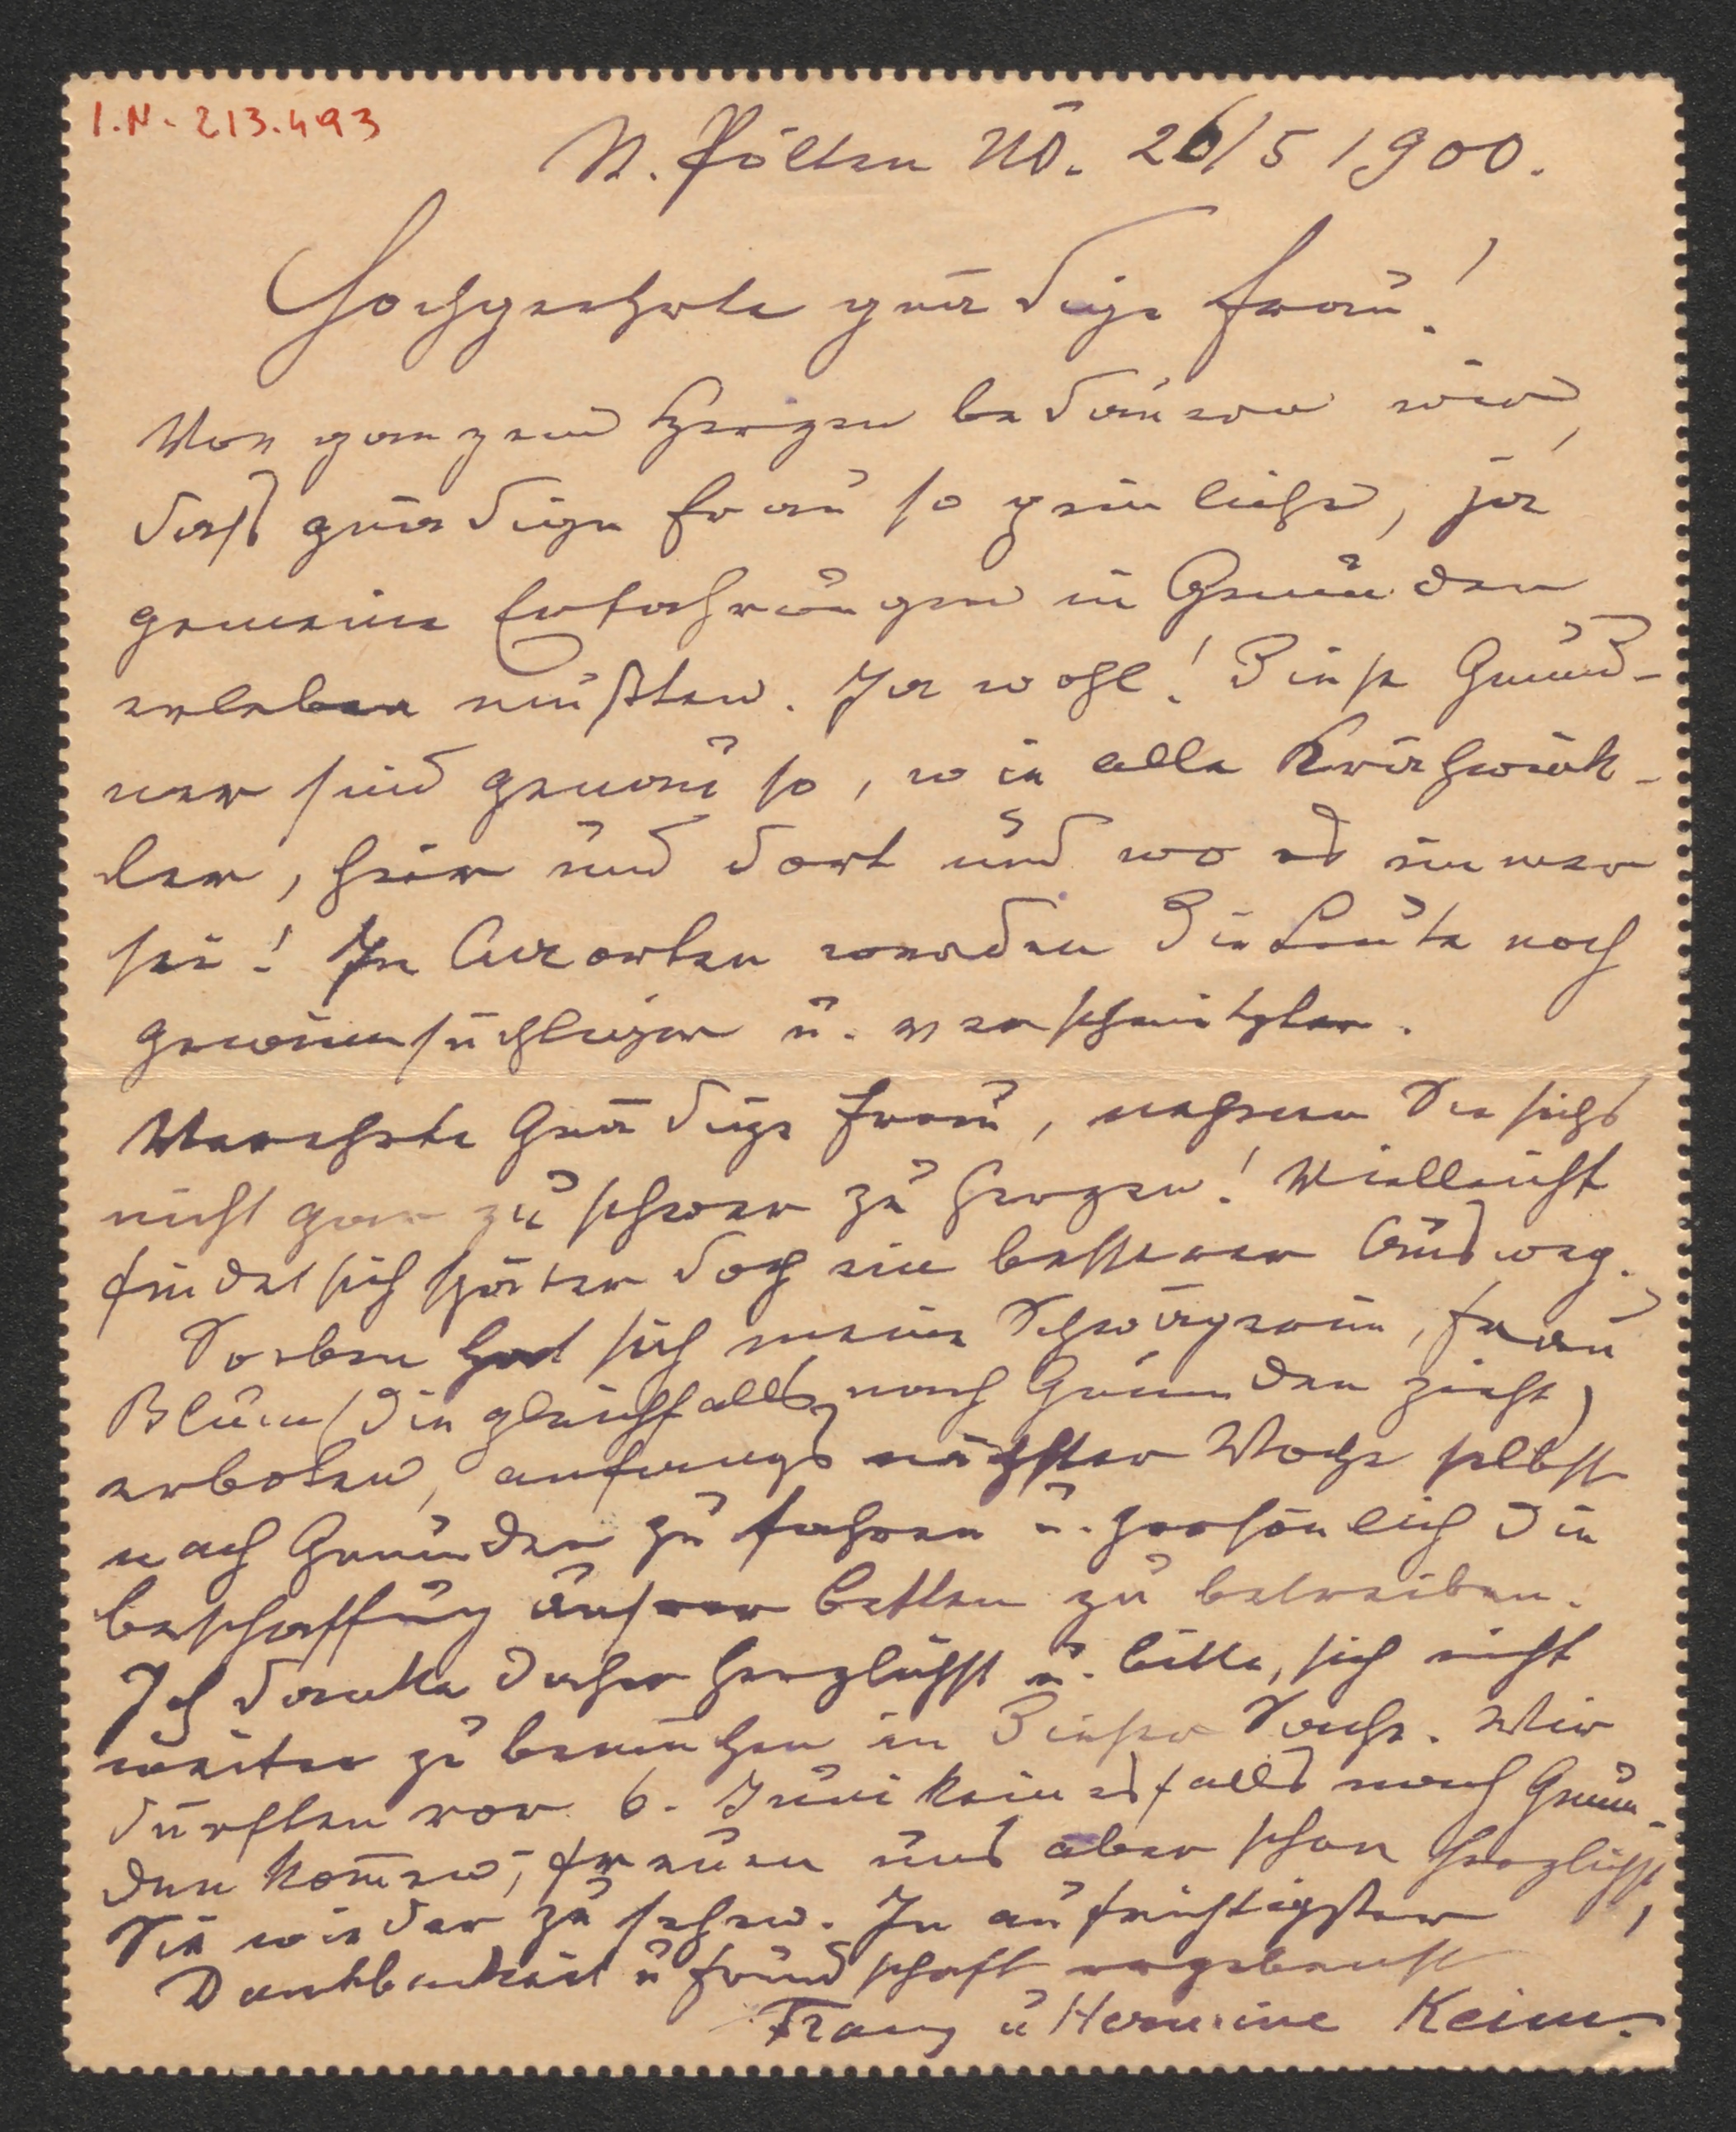 I.N. 213.493
St. Pölten NÖ. 26/5 1900.
Hochgeehrte gnädige Frau!
Von ganzem Herzen bedauern wir,
daß gnädige Frau so peinliche, ja
gemeine Erfahrungen in Gmunden
erleben mußten. Ja wohl! Diese Gmund-
ner sind genau so, wie alle Krähwink-
ler, hier und dort und wo es immer
sei! In Curorten werden die Leute noch
gewinnsüchtiger u. verschmitzter.
Verehrte Gnädige Frau, nehmen Sie sichs
nicht gar zu schwer zu Herzen! Vielleicht
findet sich später doch ein besserer Ausweg.
Soeben hat sich meine Schwägerin, Frau
Blum (die gleichfalls nach Gmunden zieht)
erboten, anfangs nächster Woche selbst
nach Gmunden zu fahren u. persönlich die
Beschaffung unserer Betten zu betreiben.
Ich danke daher herzlichst u. bitte, sich nicht
weiter zu bemühen in dieser Sache. Wir
dürften vor 6. Juni keinesfalls nach Gmun-
den kom̄en, freuen uns aber schon herzlichst,
Sie wieder zu sehen. In aufrichtigster
Dankbarkeit u Freundschaft ergebenst
Franz u Hermine Keim.